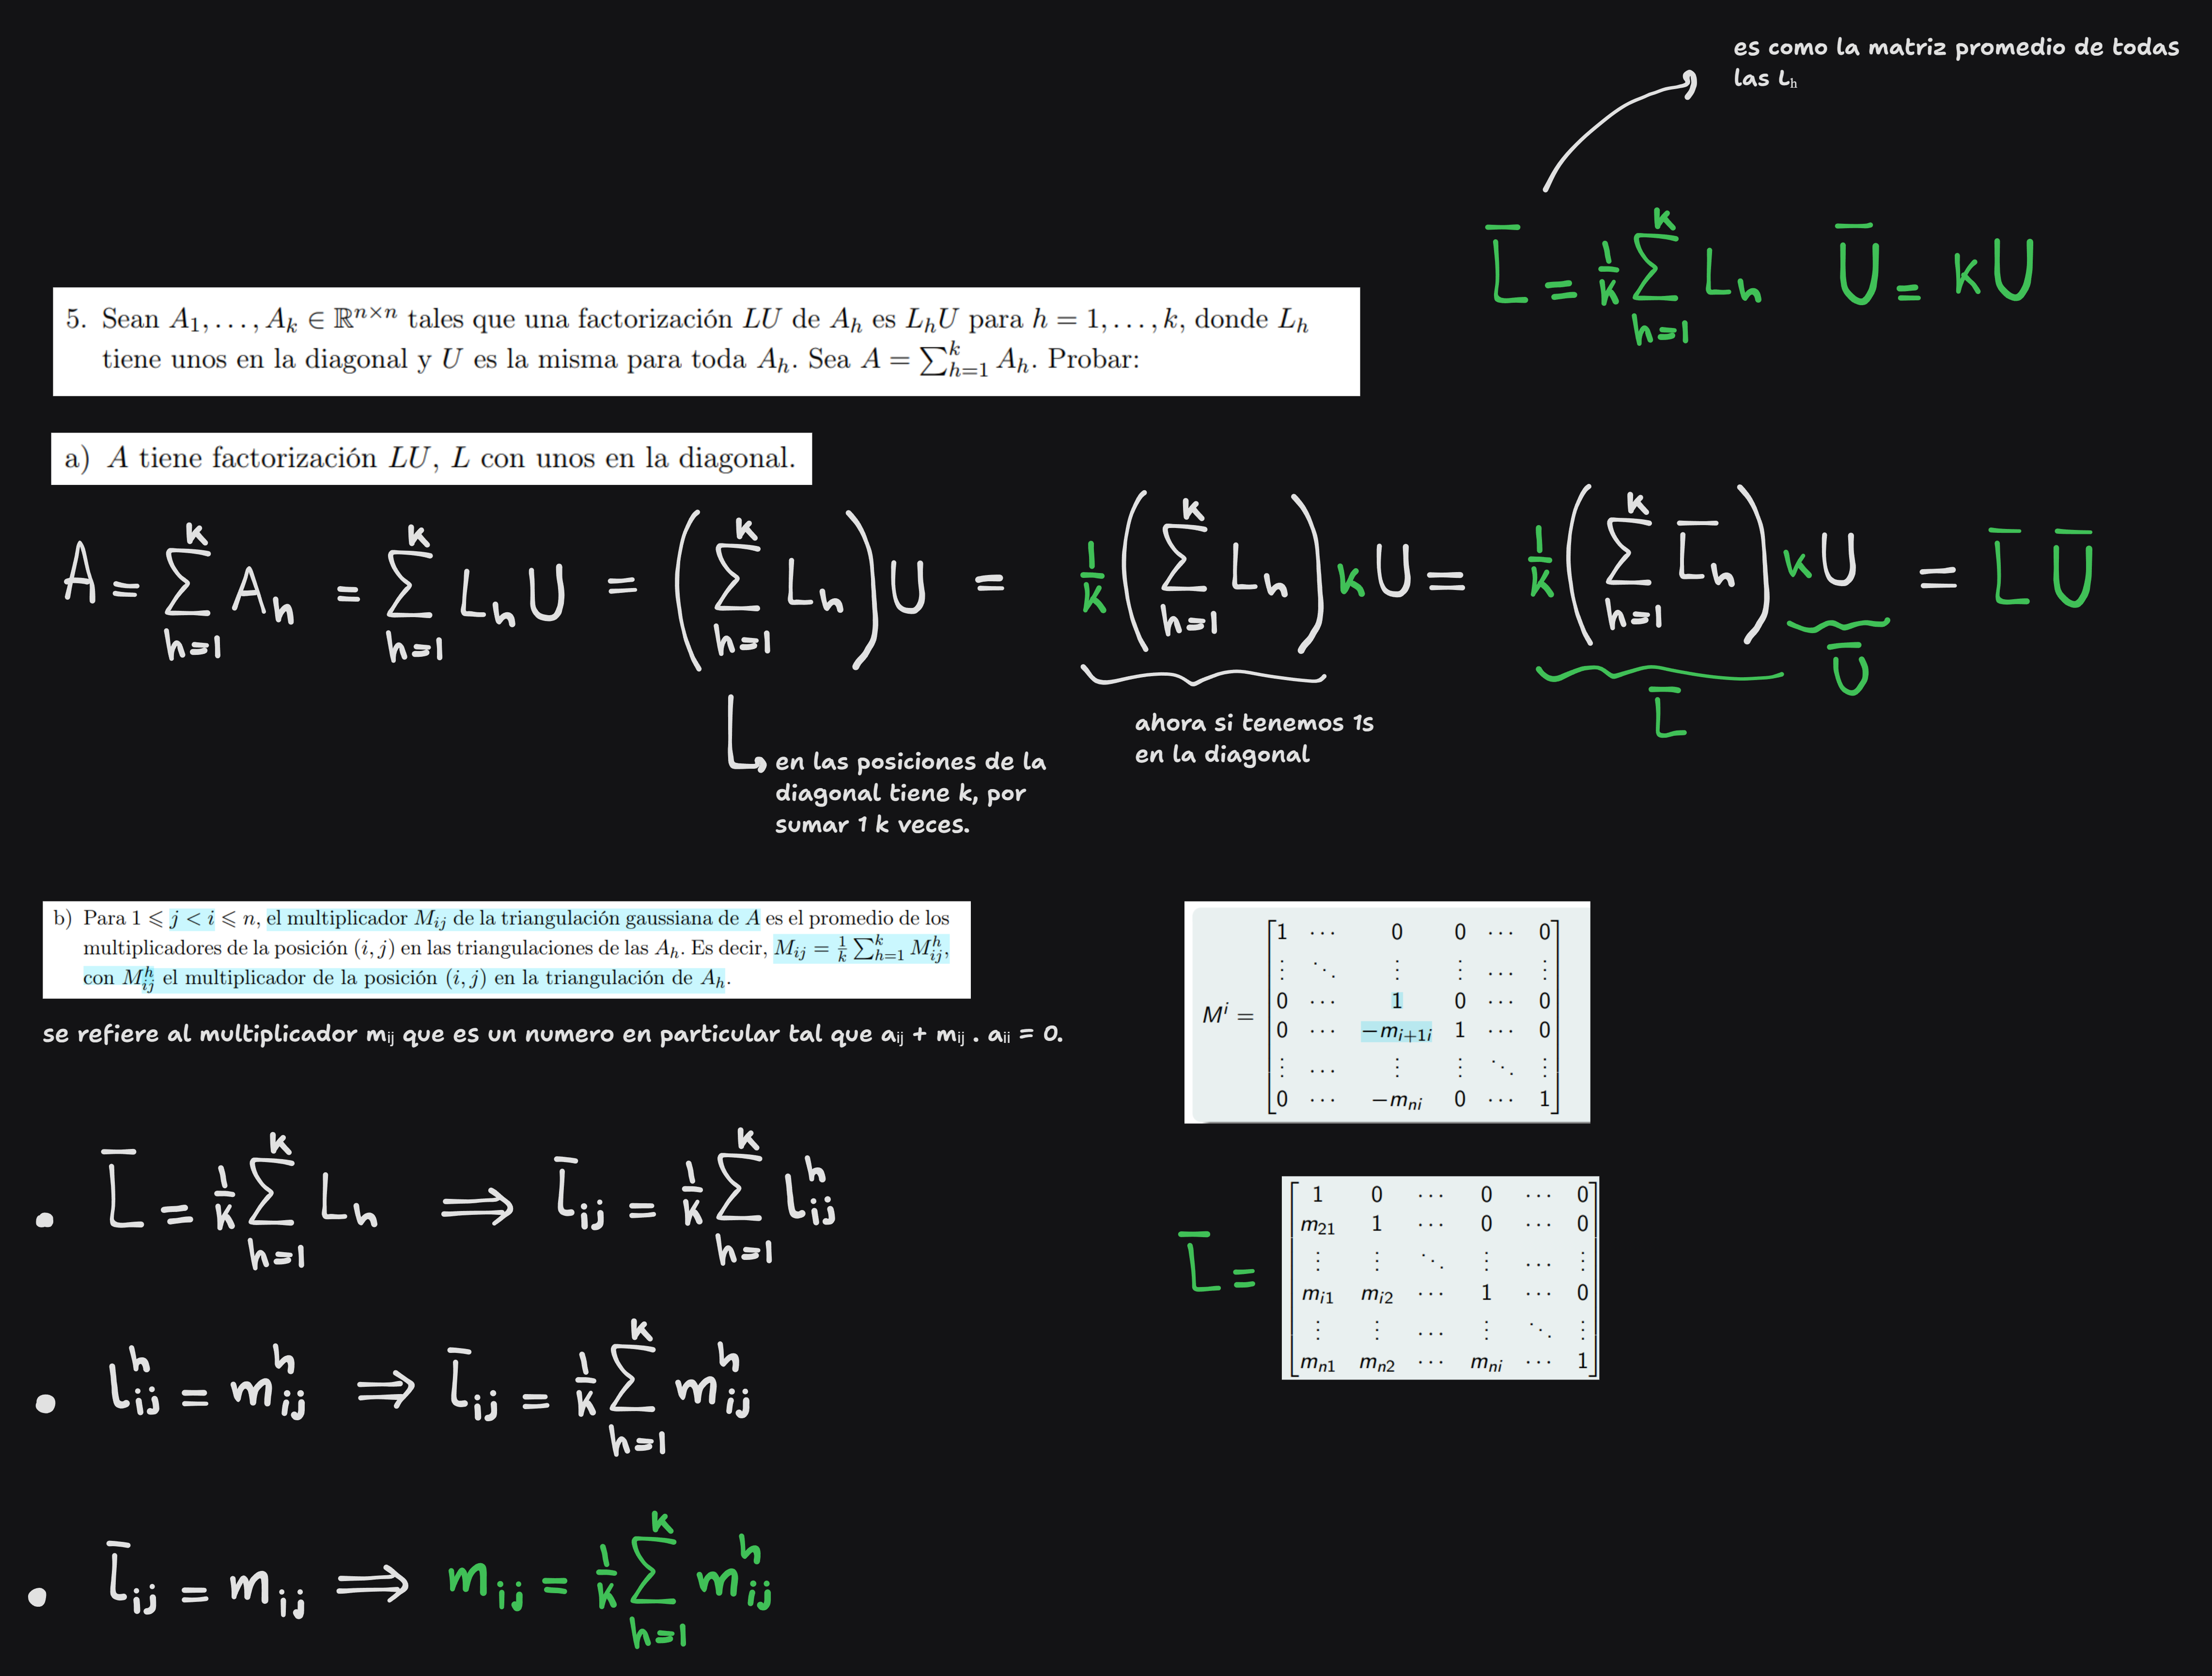 es como la matriz promedio de todas
las Lₕ
L̄ = 1/k ∑_{h=1}^{k} Lₕ   Ū = kU
5. Sean A₁, …, Aₖ ∈ ℝⁿˣⁿ tales que una factorización LU de Aₕ es LₕU para h = 1, …, k, donde Lₕ
tiene unos en la diagonal y U es la misma para toda Aₕ. Sea A = ∑_{h=1}^{k} Aₕ. Probar:
a) A tiene factorización LU, L con unos en la diagonal.
A = ∑_{h=1}^{k} Aₕ = ∑_{h=1}^{k} LₕU = (∑_{h=1}^{k} Lₕ) U = 1/k (∑_{h=1}^{k} Lₕ) kU = 1/k (∑_{h=1}^{k} L̄ₕ) kU = L̄ Ū
L̄
Ū
en las posiciones de la
diagonal tiene k, por
sumar 1 k veces.
ahora si tenemos 1s
en la diagonal
b) Para 1 ⩽ j < i ⩽ n, el multiplicador M_{ij} de la triangulación gaussiana de A es el promedio de los
multiplicadores de la posición (i, j) en las triangulaciones de las Aₕ. Es decir, M_{ij} = 1/k ∑_{h=1}^{k} M_{ij}^{h},
con M_{ij}^{h} el multiplicador de la posición (i, j) en la triangulación de Aₕ.
se refiere al multiplicador m_{ij} que es un numero en particular tal que a_{ij} + m_{ij} . a_{ii} = 0.
Mⁱ =
1 ⋯ 0 0 ⋯ 0
⋮ ⋱ ⋮ ⋮ ⋯ ⋮
0 ⋯ 1 0 ⋯ 0
0 ⋯ −m_{i+1i} 1 ⋯ 0
⋮ ⋯ ⋮ ⋮ ⋱ ⋮
0 ⋯ −m_{ni} 0 ⋯ 1
• L̄ = 1/k ∑_{h=1}^{k} Lₕ ⟹ l̄_{ij} = 1/k ∑_{h=1}^{k} l_{ij}^{h}
• l_{ij}^{h} = m_{ij}^{h} ⟹ l̄_{ij} = 1/k ∑_{h=1}^{k} m_{ij}^{h}
• l̄_{ij} = m_{ij} ⟹ m_{ij} = 1/k ∑_{h=1}^{k} m_{ij}^{h}
L̄ =
1 0 ⋯ 0 ⋯ 0
m_{21} 1 ⋯ 0 ⋯ 0
⋮ ⋮ ⋱ ⋮ ⋯ ⋮
m_{i1} m_{i2} ⋯ 1 ⋯ 0
⋮ ⋮ ⋯ ⋮ ⋱ ⋮
m_{n1} m_{n2} ⋯ m_{ni} ⋯ 1